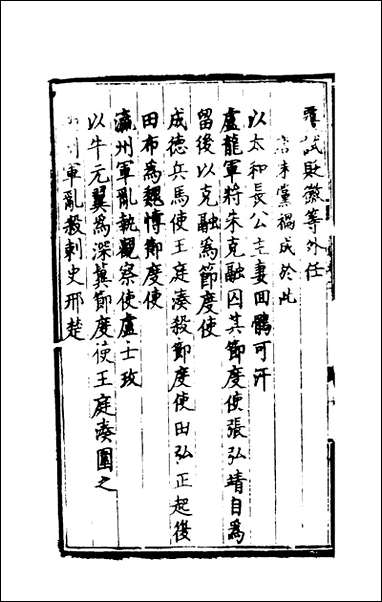 覆試貶徽等外任
唐末黨禍成於此
以太和長公主妻回鶻可汗
盧龍軍將朱克融囚其節度使張弘靖自為
留後以克融為節度使
成德兵馬使王庭湊殺節度使田弘正起復
田布為魏博節度使
瀛州軍亂執觀察使盧士玫
以牛元翼為深冀節度使王庭湊圍之
州軍亂殺刺史邢楚